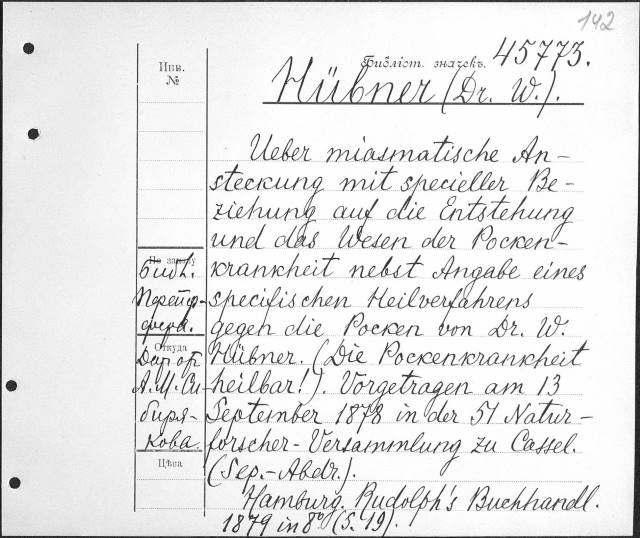 142
Инв.
№
Библіот. значекъ. 45773.
Hübner (Dr. W.).
Ueber miasmatische An-
steckung mit specieller Be-
ziehung auf die Entstehung
und das Wesen der Pocken-
krankheit nebst Angabe eines
specifischen Heilverfahrens
gegen die Pocken von Dr. W.
Hübner. (Die Pockenkrankheit
heilbar!). Vorgetragen am 13
September 1878 in der 51 Natur-
forscher-Versammlung zu Cassel.
(Sep.-Abdr.).
Hamburg. Rudolph's Buchhandl.
1879 in 8º (S. 19).
По заказу
Библ.
Откуда
Дар от
А. М. Си-
биря-
кова.
Цѣна